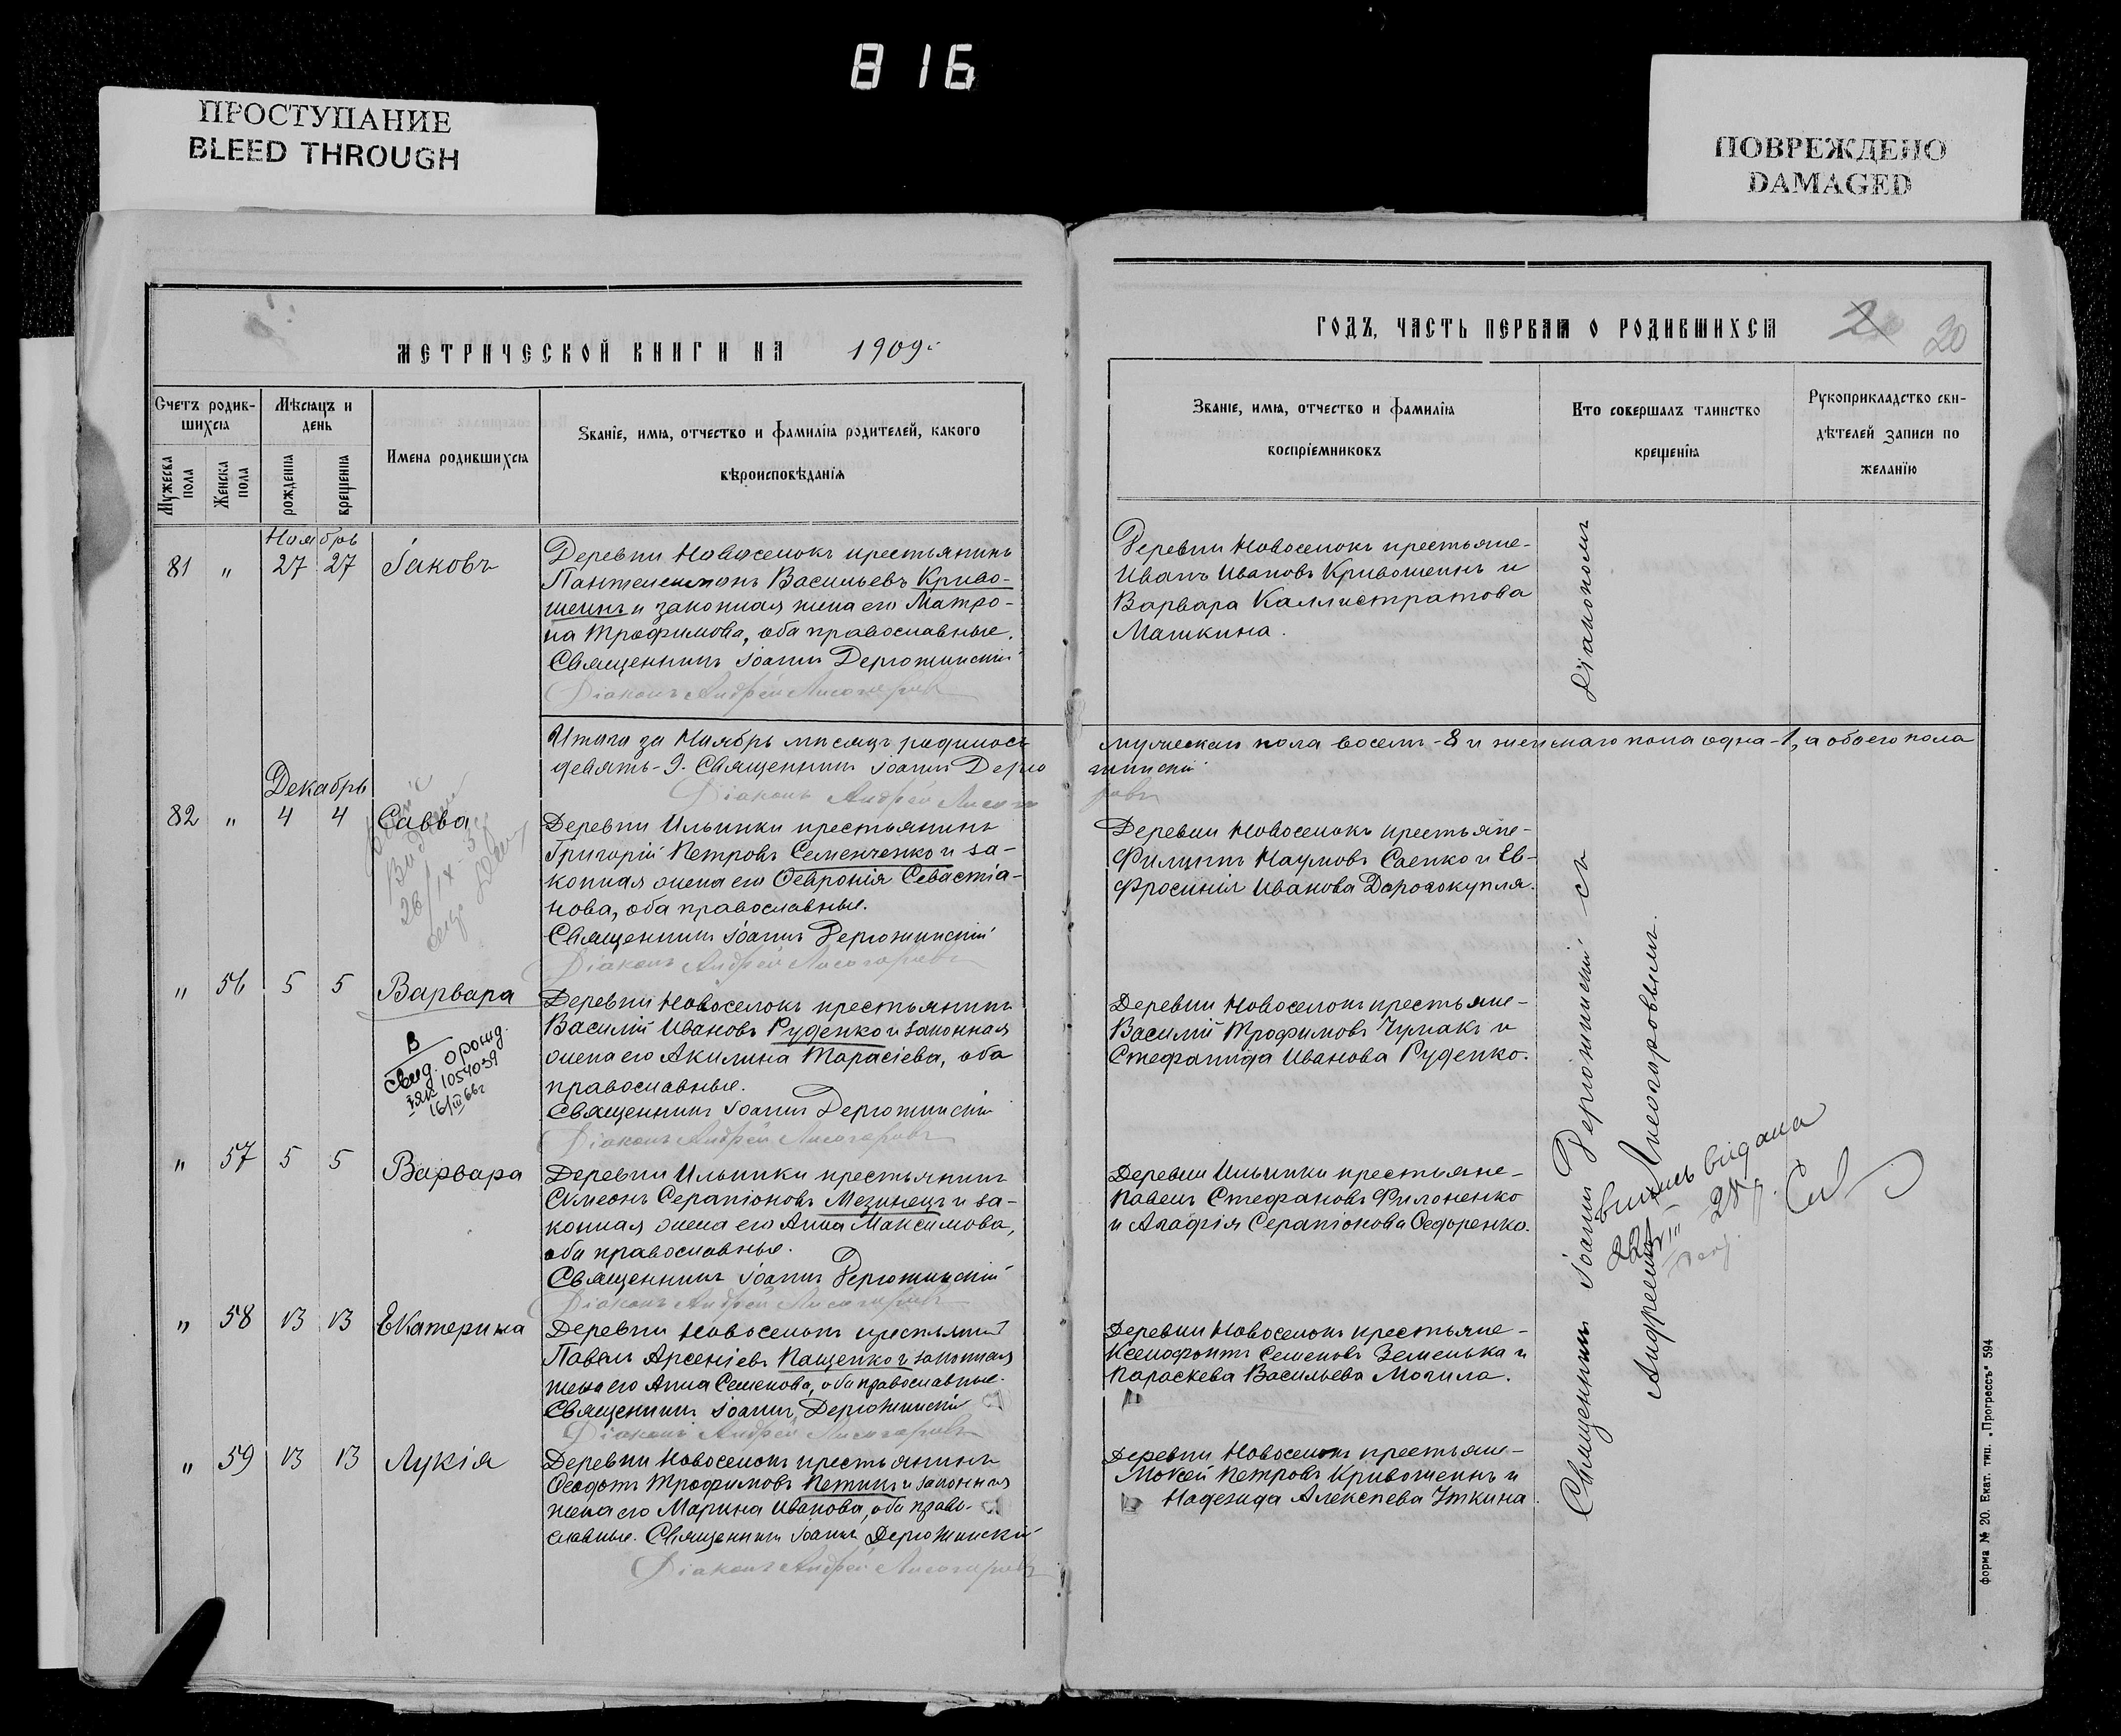 816
ПРОСТУПАНИЕ
BLEED THROUGH
ПОВРЕЖДЕНО
DAMAGED
МЕТРИЧЕСКОЙ КНИГИ НА 1909
Счетъ родив-
шихся
Мѣсяцъ и
день
Мужеска
пола
Женска
пола
рожденія
крещенія
Имена родившихся
Званіе, имя, отчество и фамилія родителей, какого
вѣроисповѣданія
Ноябрь
81 " 27 27 Іаковъ
Деревни Новоселокъ крестьянинъ
Пантелеимонъ Васильевъ Криво-
шеинъ и законная жена его Матро-
на Трофимова, оба православные.
Священникъ Іоаннъ Дерюжинскій
Діаконъ Андрей Лисогоровъ
Итого за Ноябрь мѣсяцъ родилось
девять - 9. Священникъ Іоаннъ Дерю
Діаконъ Андрей Лисого
Декабрь
82 " 4 4 Савва
Деревни Ильинки крестьянинъ
Григорій Петровъ Семенченко и за-
конная жена его Ѳевронія Севастіа-
нова, оба православные.
Священникъ Іоаннъ Дерюжинскій
Діаконъ Андрей Лисогоровъ
" 56 5 5 Варвара
В
свид. о рожд.
ІЯК 1054039
16/III 66г
Деревни Новоселокъ крестьянинъ
Василій Ивановъ Руденко и законная
жена его Акилина Тарасіева, оба
православные.
Священникъ Іоаннъ Дерюжинскій
Діаконъ Андрей Лисогоровъ
" 57 5 5 Варвара
Деревни Ильинки крестьянинъ
Симеонъ Серапіоновъ Мезинецъ и за-
конная жена его Анна Максимова,
оба православные.
Священникъ Іоаннъ Дерюжинскій
Діаконъ Андрей Лисогоровъ
" 58 13 13 Екатерина
Деревни Новоселокъ крестьянинъ
Павелъ Арсеніевъ Пащенко и законная
жена его Анна Семенова, оба православные.
Священникъ Іоаннъ Дерюжинскій
Діаконъ Андрей Лисогоровъ
" 59 13 13 Лукія
Деревни Новоселокъ крестьянинъ
Ѳеодотъ Трофимовъ Петикъ и законная
жена его Марина Иванова, оба право-
славные. Священникъ Іоаннъ Дерюжинскій
Діаконъ Андрей Лисогоровъ
ГОДЪ, ЧАСТЬ ПЕРВАЯ О РОДИВШИХСЯ
20
Званіе, имя, отчество и фамилія
воспріемниковъ
Кто совершалъ таинство
крещенія
Рукоприкладство сви-
дѣтелей записи по
желанію
Деревни Новоселокъ крестьяне-
Иванъ Ивановъ Кривошеинъ и
Варвара Каллистратова
Машкина.
мужескаго пола восемь - 8 и женскаго пола одна - 1, а обоего пола
жинскій
ровъ
Деревни Новоселокъ крестьяне-
Филиппъ Наумовъ Саенко и Ев-
фросинія Иванова Дорогокупля.
Деревни Новоселокъ крестьяне-
Василій Трофимовъ Чумакъ и
Стефанида Иванова Руденко.
Деревни Ильинки крестьяне-
Павелъ Стефановъ Филоненко
и Агафія Серапіонова Ѳедоренко.
Деревни Новоселокъ крестьяне-
Ксенофонтъ Семеновъ Земенька и
Параскева Васильева Могила.
Деревни Новоселокъ крестьяне-
Мокей Петровъ Кривошеинъ и
Надежда Алексѣева Уткина.
Священникъ Іоаннъ Дерюжинскій съ
діакономъ
Андреемъ Лисогоровымъ.
выпись видана
форма № 20. Екат. тип. „Прогрессъ“ 594